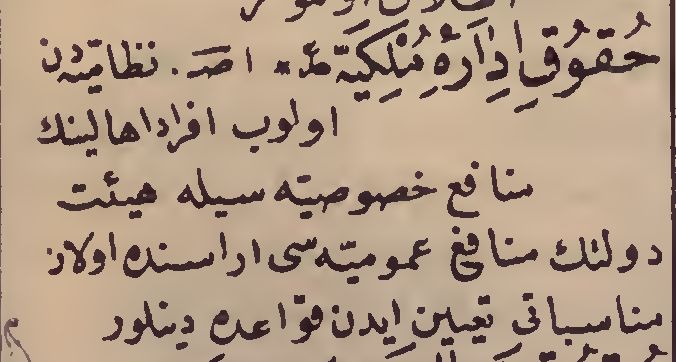 حُقوُقِ اِدَارَهٔ مُلْكِيَّه اصـ. نظاميّه دن
اولوب افراد اهالينك
منافع خصوصيّه سيله هيئت
دولتك منافع عموميّه سى اراسنده اولان
مناسباتى تعيين ايدن قواعده دينلور